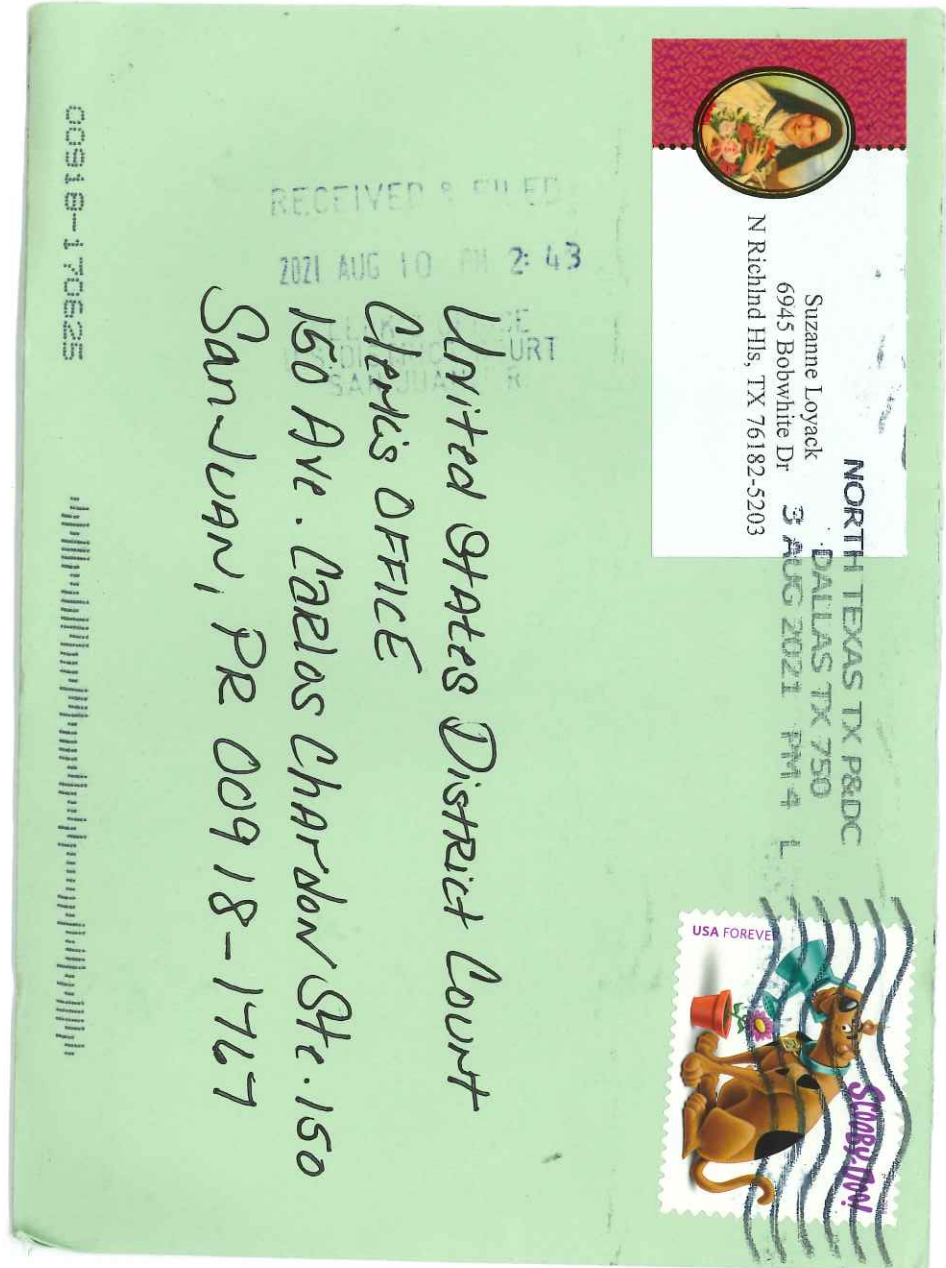 Suzanne Loyack
6945 Bobwhite Dr
N Richlnd Hls, TX 76182-5203
NORTH TEXAS TX P&DC
DALLAS TX 750
3 AUG 2021 PM 4 L
USA FOREVER
SCOOBY-DOO!
RECEIVED & FILED
2021 AUG 10 PM 2:43
URT
SAN JUAN
United States District Court
Clerk's OFFICE
150 Ave. Carlos Chardon Ste. 150
San Juan, PR 00918-1767
00918-170625